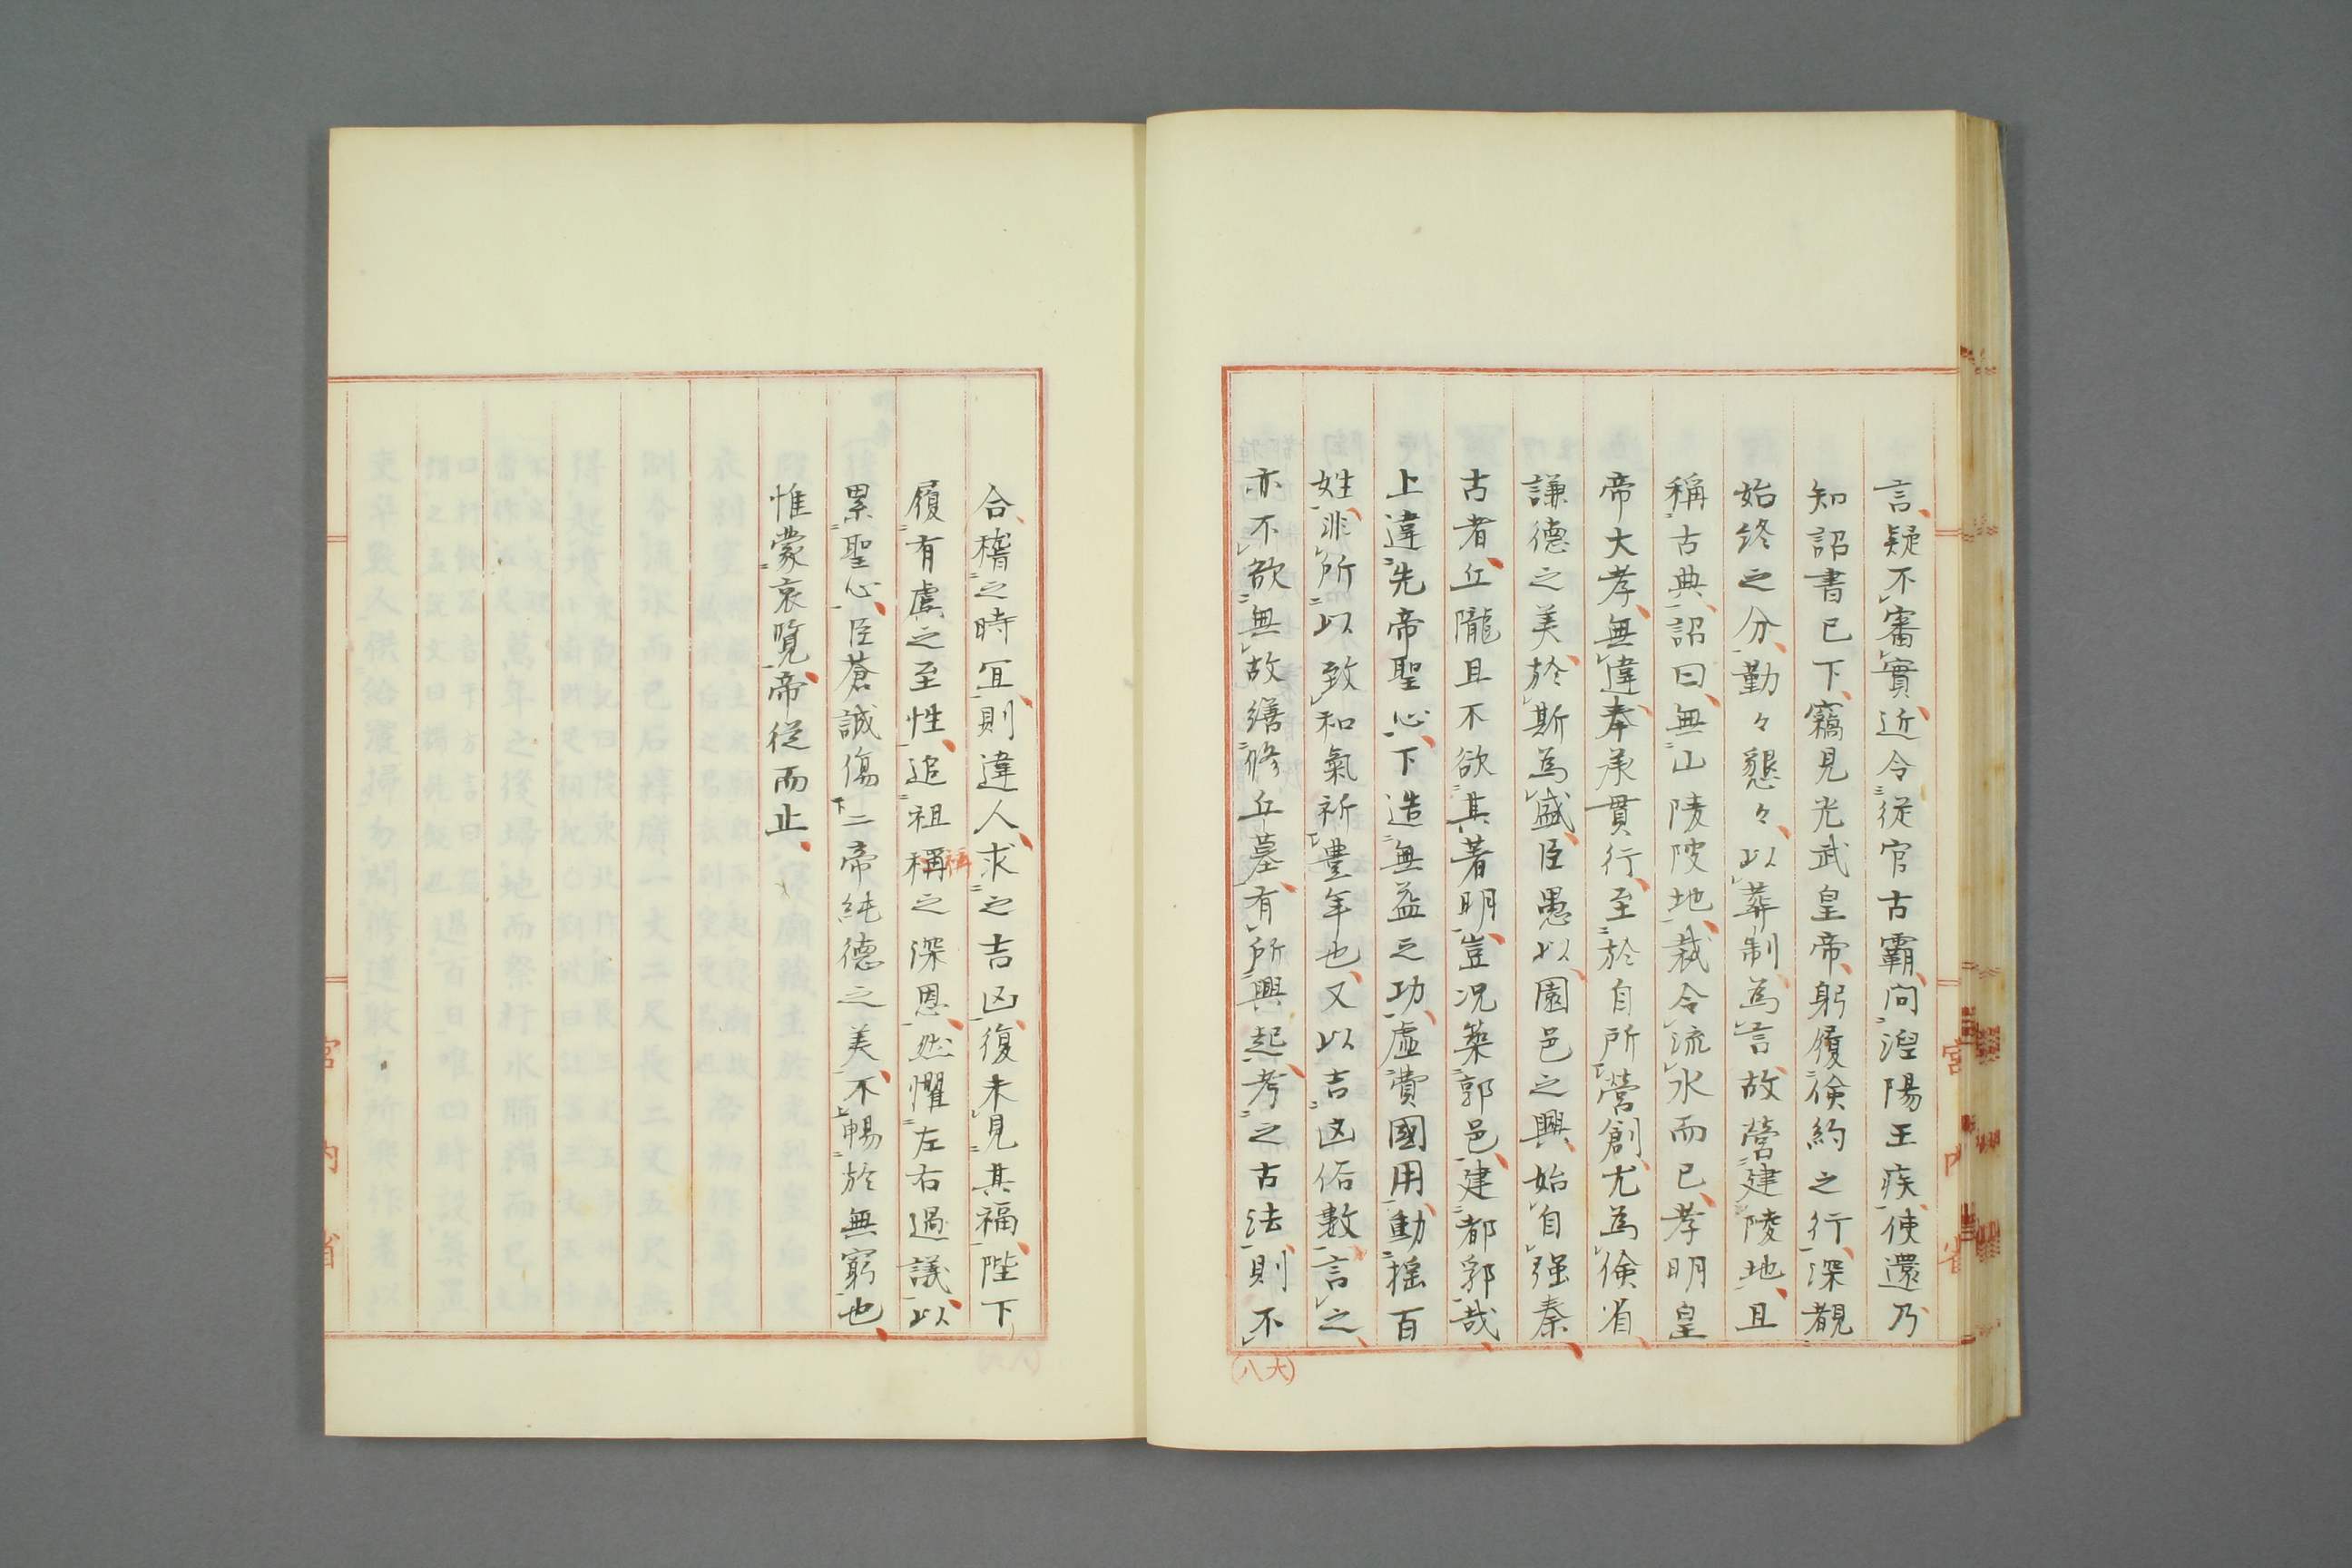 言疑不審實近令從官古霸問湼陽王疾使還乃
知詔書已下竊見光武皇帝躬履儉約之行深覩
始終之分勤々懇々以葬制為言故營建陵地且
稱古典詔曰無山陵陂地裁令流水而已孝明皇
帝大孝無違奉承貫行至於自所營創尤為儉省
謙德之美於斯為盛臣愚以園邑之興始自强秦
古者丘隴且不欲其著明豈况築郭邑建都郛哉
上違先帝聖心下造無益之功虛費國用動搖百
姓非所以致和氣祈豐年也又以吉凶俗數言之
亦不欲無故繕修丘墓有所興起考之古法則不
(八大)
合稽之時宜則違人求之吉凶復未見其福陛下
履有虞之至性追祖稱之深恩然懼左右過議以
累聖心臣蒼誠傷二帝純德之美不暢於無窮也
惟蒙哀覽帝從而止
宮內省
宮內省